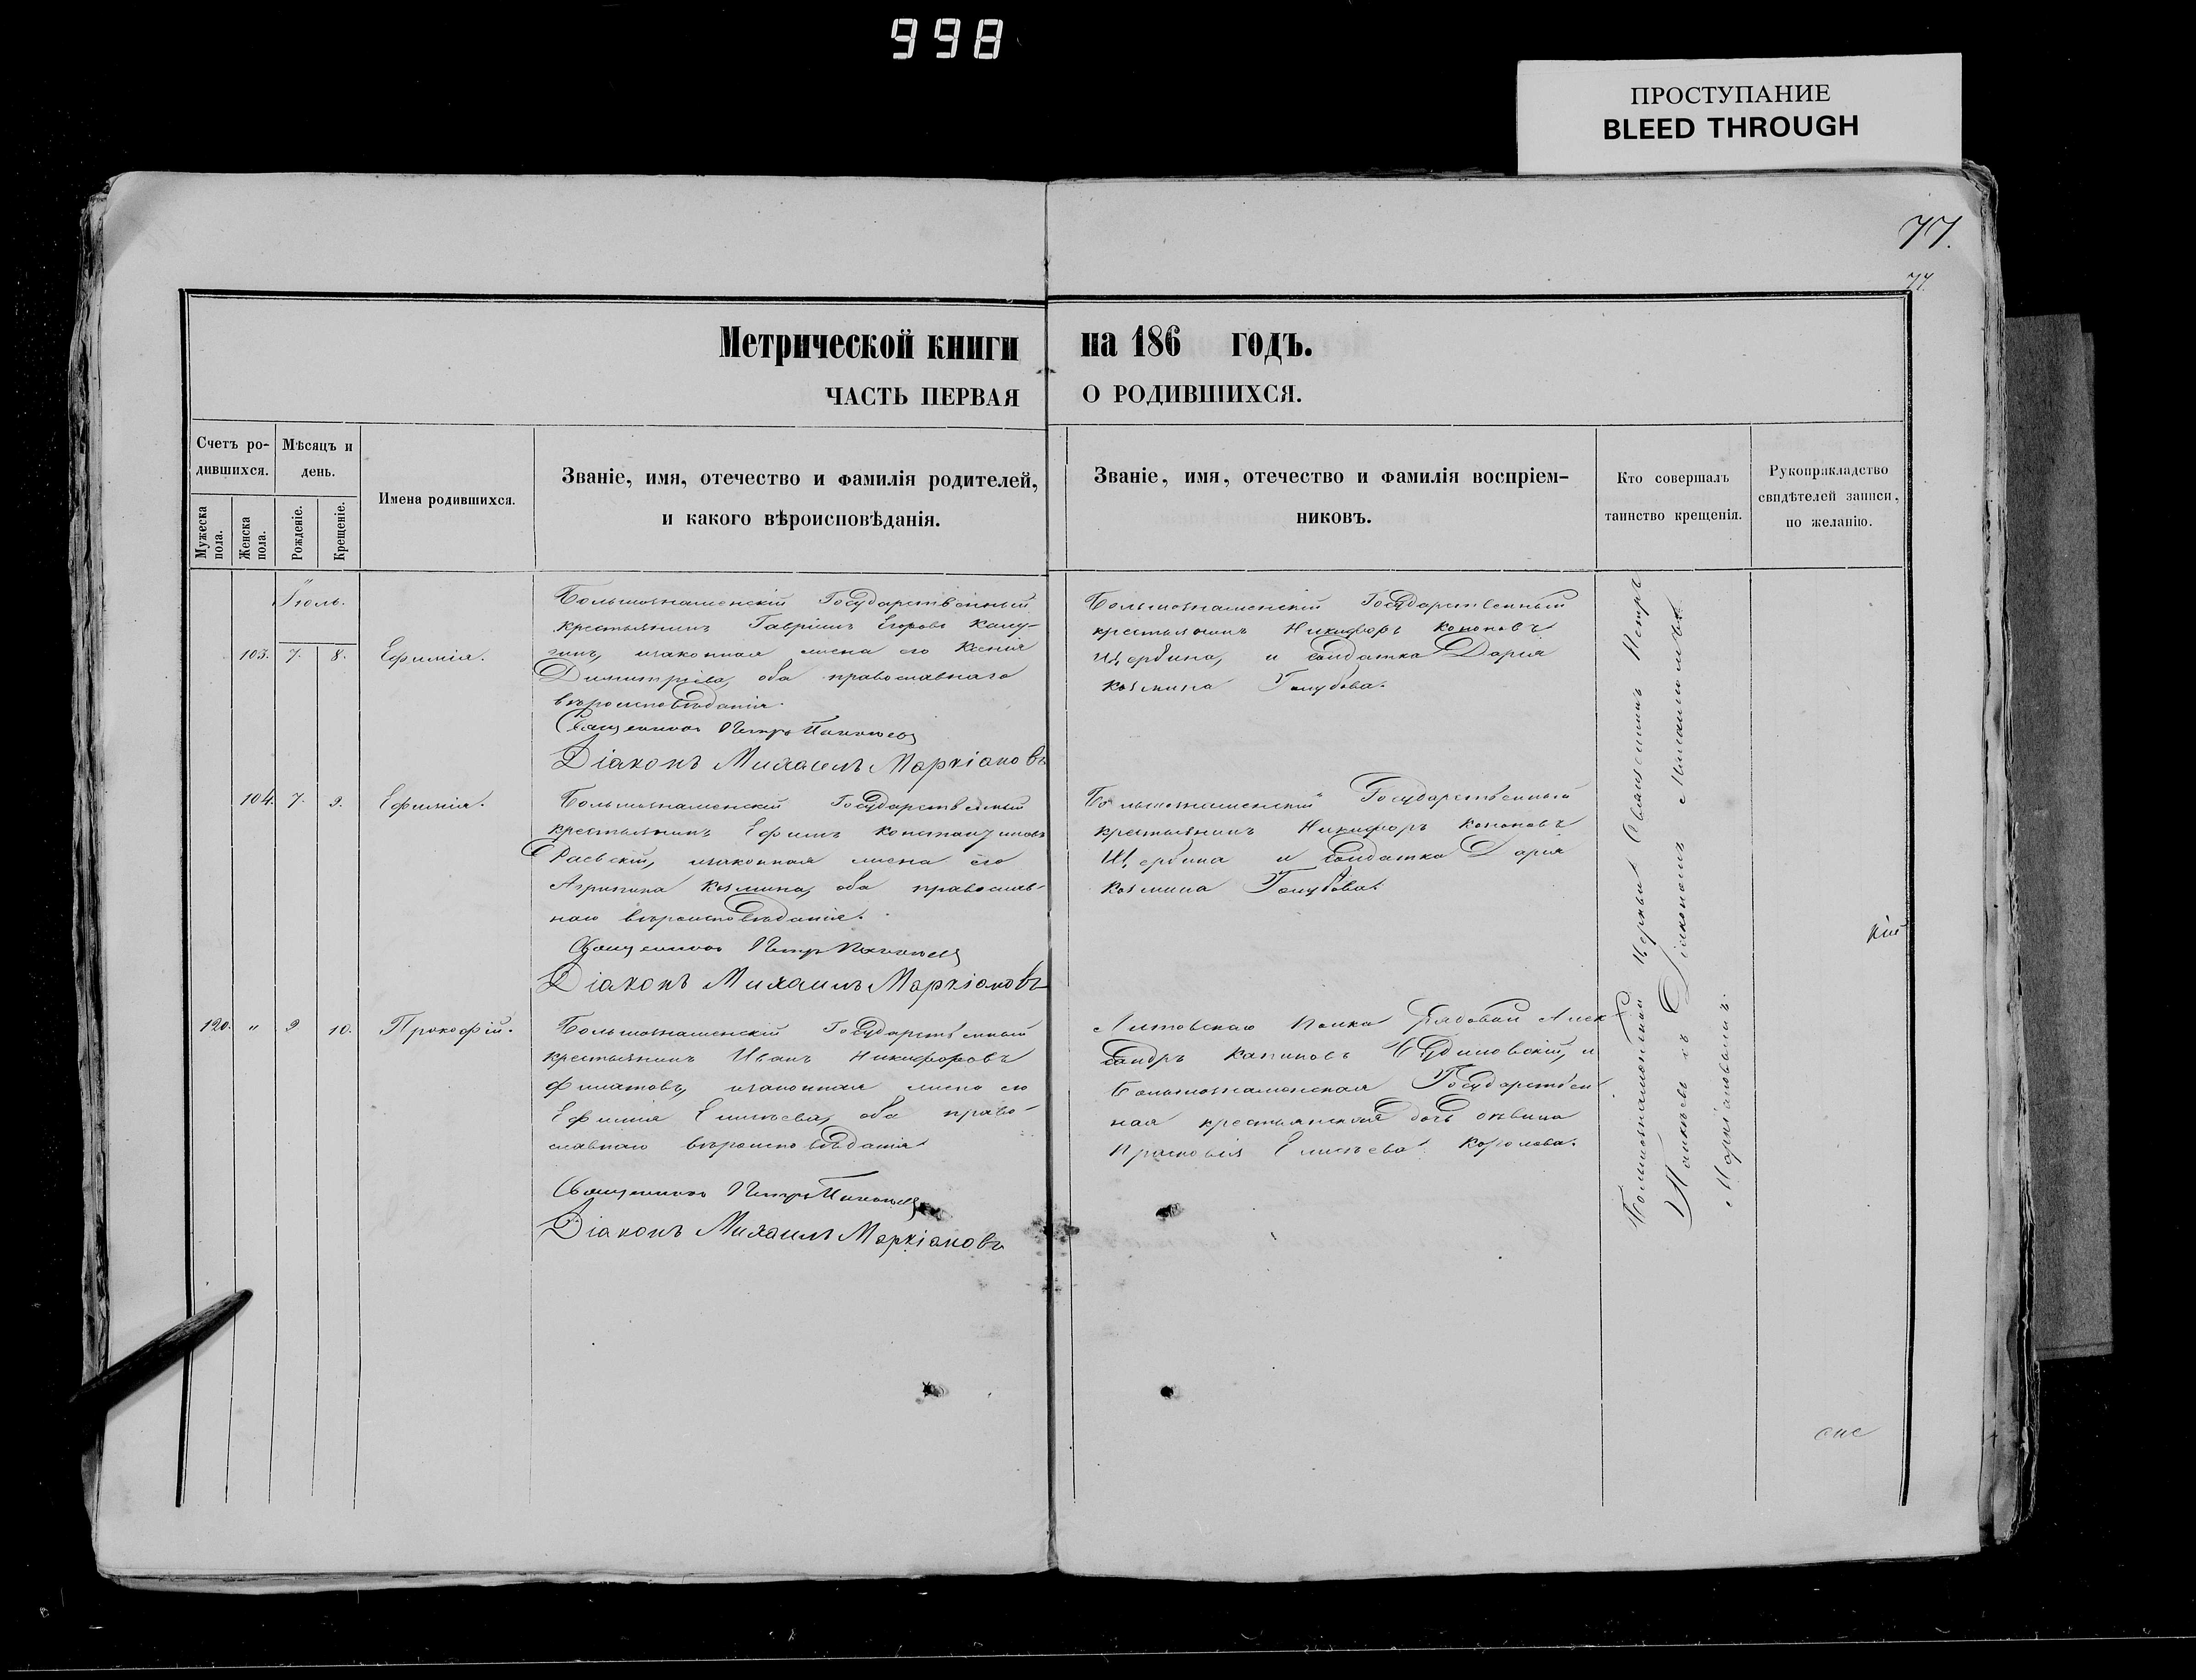 998
ПРОСТУПАНИЕ
BLEED THROUGH
77.
77.
Метрической книги на 186 годъ.
ЧАСТЬ ПЕРВАЯ О РОДИВШИХСЯ.
Счетъ ро-
дившихся.
Мужеска пола.
Женска пола.
Мѣсяцъ и
день.
Рожденіе.
Крещеніе.
Имена родившихся.
Званіе, имя, отечество и фамилія родителей,
и какого вѣроисповѣданія.
Званіе, имя, отечество и фамилія воспріем-
никовъ.
Кто совершалъ
таинство крещенія.
Рукоприкладство
свидѣтелей записи,
по желанію.
Іюль.
103. 7. 8. Ефимія.
Большезнаменскій Государственный
крестьянинъ Гавріилъ Егоровъ Калу-
гинъ, изаконная жена его Ксенія
Димитріева, оба православнаго
вѣроисповѣданія.
Священникъ Петръ
Діаконъ Михаилъ Маркіановъ
Большезнаменскій Государственный
крестьянинъ Никифоръ Кононовъ
Щербина, и Солдатка Дарія
Козмина Голубова.
104. 7. 9. Ефимія.
Большезнаменскій Государственный
крестьянинъ Ефимъ Константиновъ
Раевскій, изаконная жена его
Агрипина Козмина, оба православ-
наго вѣроисповѣданія.
Священникъ Петръ
Діаконъ Михаилъ Маркіановъ
Большезнаменскій Государственный
крестьянинъ Никифоръ Кононовъ
Щербина и Солдатка Дарія
Козмина Голубова.
120. " 9 10. Прокофій.
Большезнаменскій Государственный
крестьянинъ Иванъ Никифоровъ
Филатовъ, изаконная жена его
Ефимія Елисѣева, оба право-
славнаго вѣроисповѣданія
Священникъ Петръ
Діаконъ Михаилъ Маркіановъ
Литовскаго Полка Рядовой Алек-
сандръ и
Большезнаменская Государствен
ная крестьянская дочь дѣвица
Прасковія Елисѣева Королева.
Большезнаменской Церкви Священникъ Петръ
съ Діакономъ Михаиломъ
Маркіановымъ.